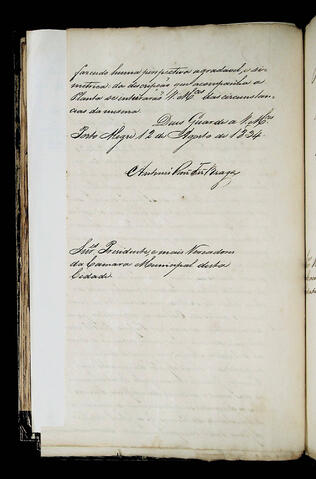 fazendo huma perspectiva agradavel, e si-
metrica. da descripção que acompanha a
Planta se enteirarão V. M.ces das circunstan-
cias da mesma
Deos Guarde a V. M.ces
Porto Alegre 12 de Agosto de 1834.
Antonio Roiz Frz Braga
Snr.es Presidente, e mais Vereadores
da Camara Municipal desta
Cidade